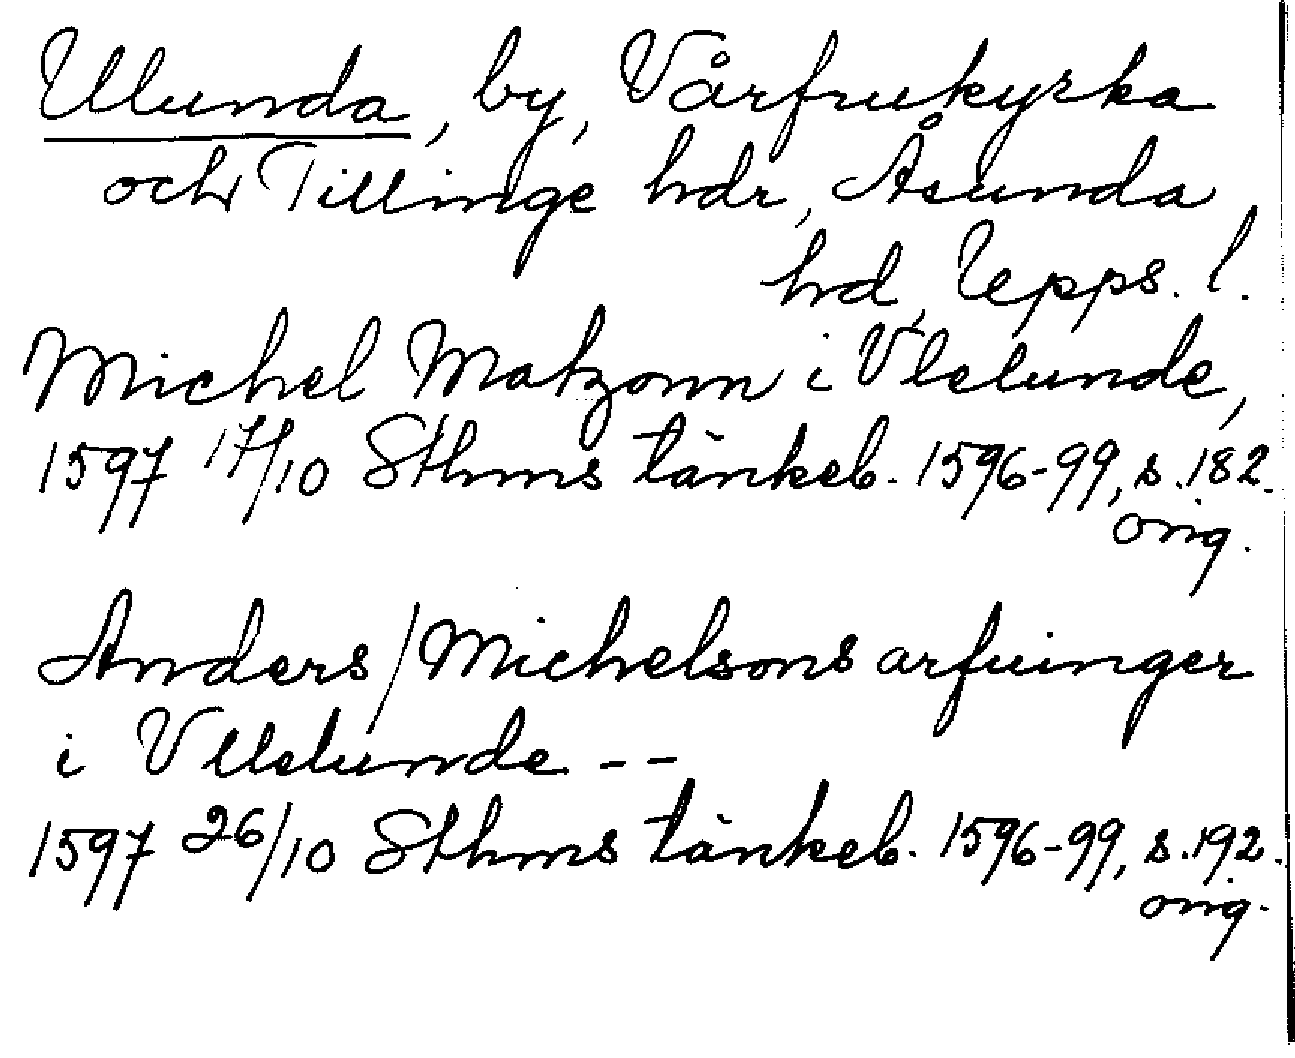 Ulunda, by, Vårfrukyrka
och Tillinge hdr, Åsunda
hd, Upps. l.
Michel Matzonn i Vlelunde,
1597 17/10 Sthms tänkeb. 1596-99, s. 182.
orig.
Anders / Michelsons arfuinger
i Vllelunde --
1597 26/10 Sthms tänkeb. 1596-99, s. 192.
orig.